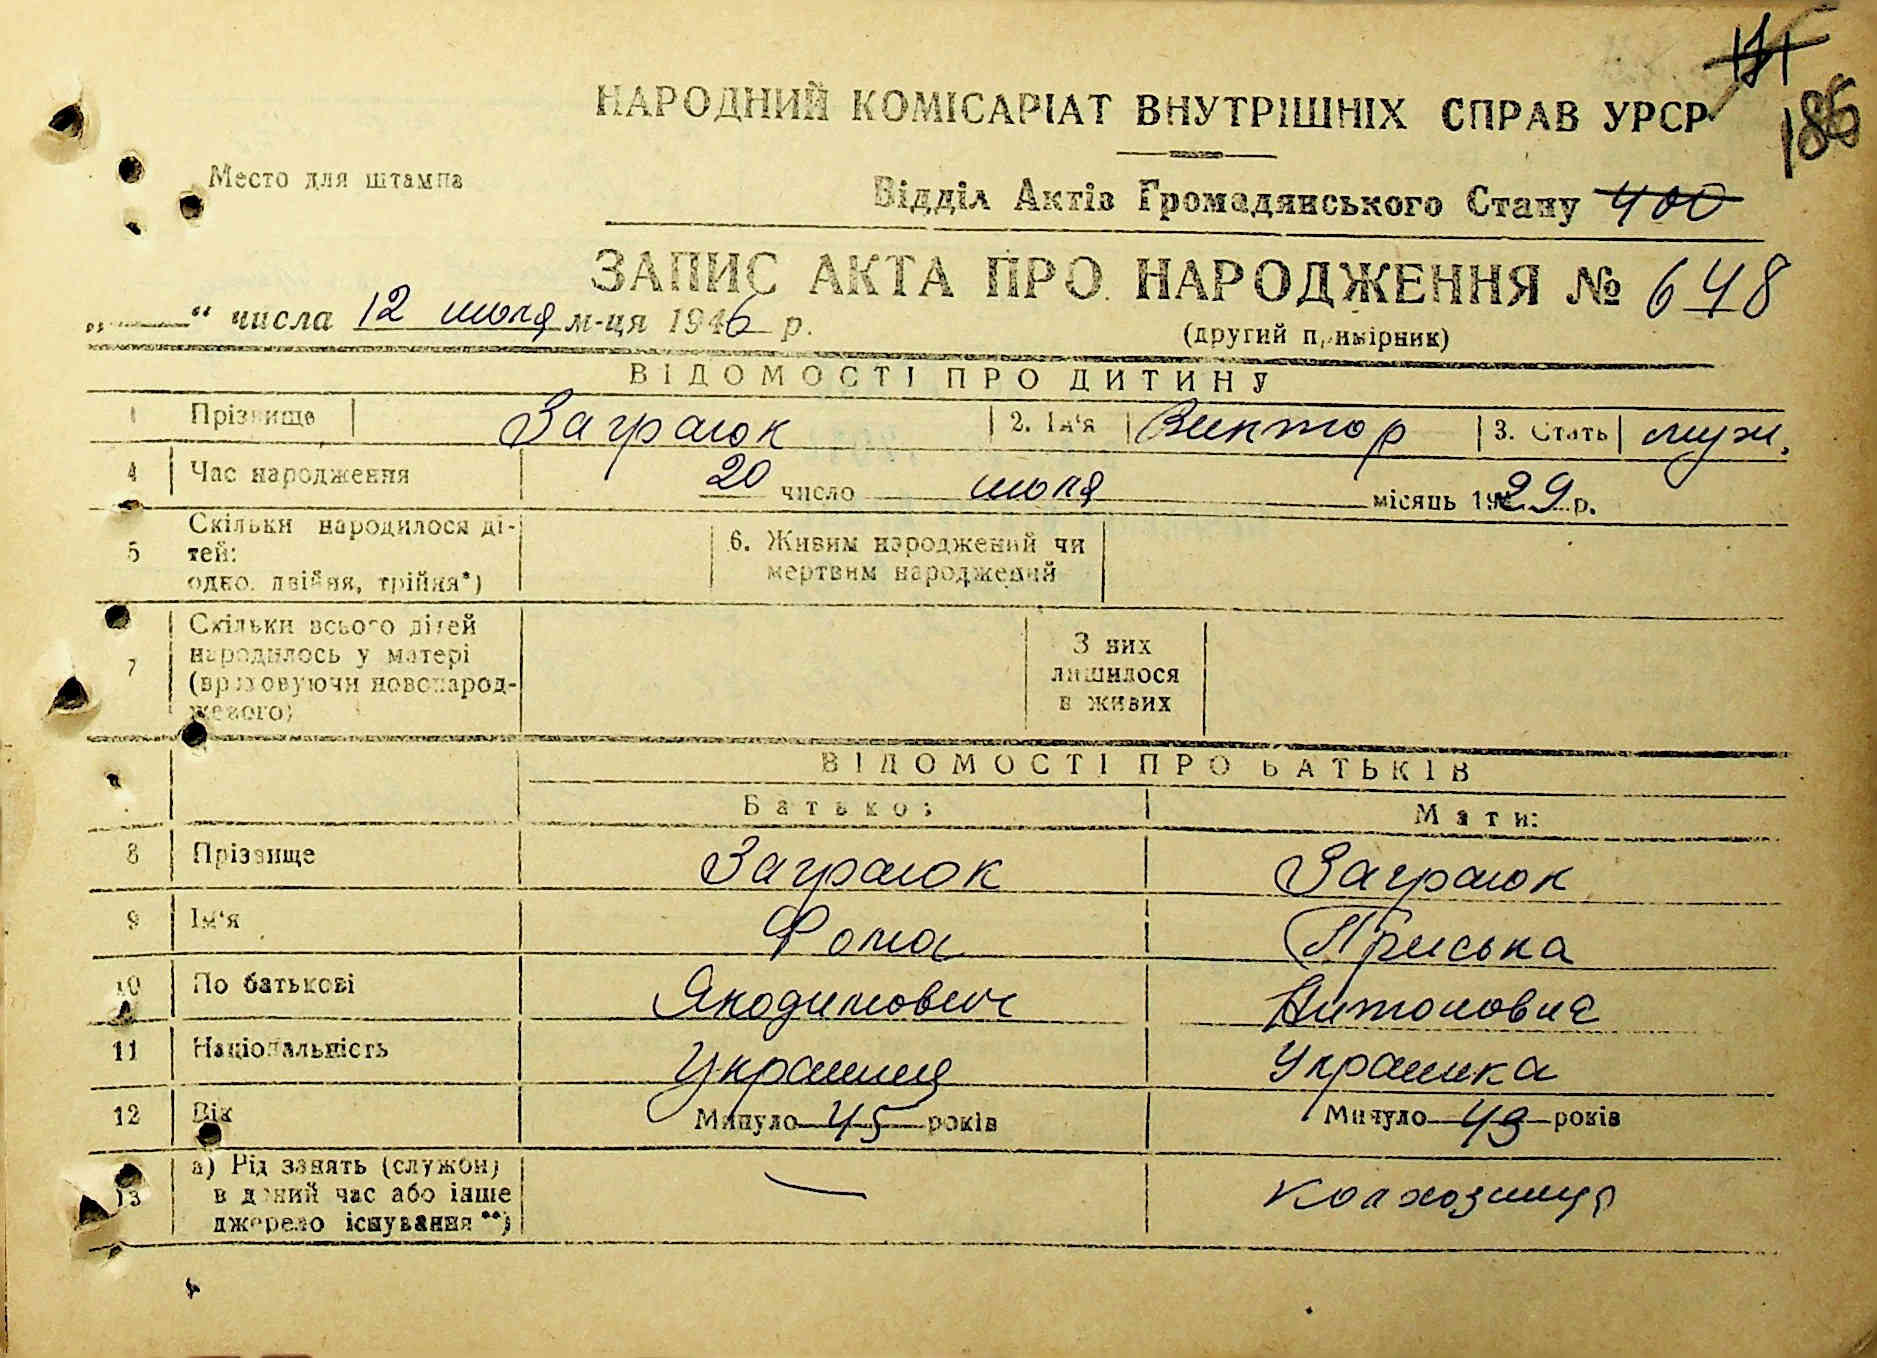 186
НАРОДНИЙ КОМІСАРІАТ ВНУТРІШНІХ СПРАВ УРСР
Место для штампа
Відділ Актів Громадянського Стану 400
ЗАПИС АКТА ПРО НАРОДЖЕННЯ № 648
„ “ числа 12 июля м-ця 1946 р.
(другий примірник)
ВІДОМОСТІ ПРО ДИТИНУ
1 Прізвище Заграюк 2. Ім'я Виктор 3. Стать муж.
4 Час народження 20 число июля місяць 1929 р.
5 Скільки народилося ді-
тей:
одно, двійня, трійня*)
6. Живим народжений чи
мертвим народжений
7 Скільки всього дітей
народилось у матері
(враховуючи новонарод-
женого)
З них
лишилося
в живих
ВІДОМОСТІ ПРО БАТЬКІВ
Батько: Мати:
8 Прізвище Заграюк Заграюк
9 Ім'я Фома Приська
10 По батькові Антоновна
11 Національність Украинец Украинка
12 Вік Минуло 45 років Минуло 43 років
13 а) Рід занять (служби)
в даний час або інше
джерело існування**)
— колхозница